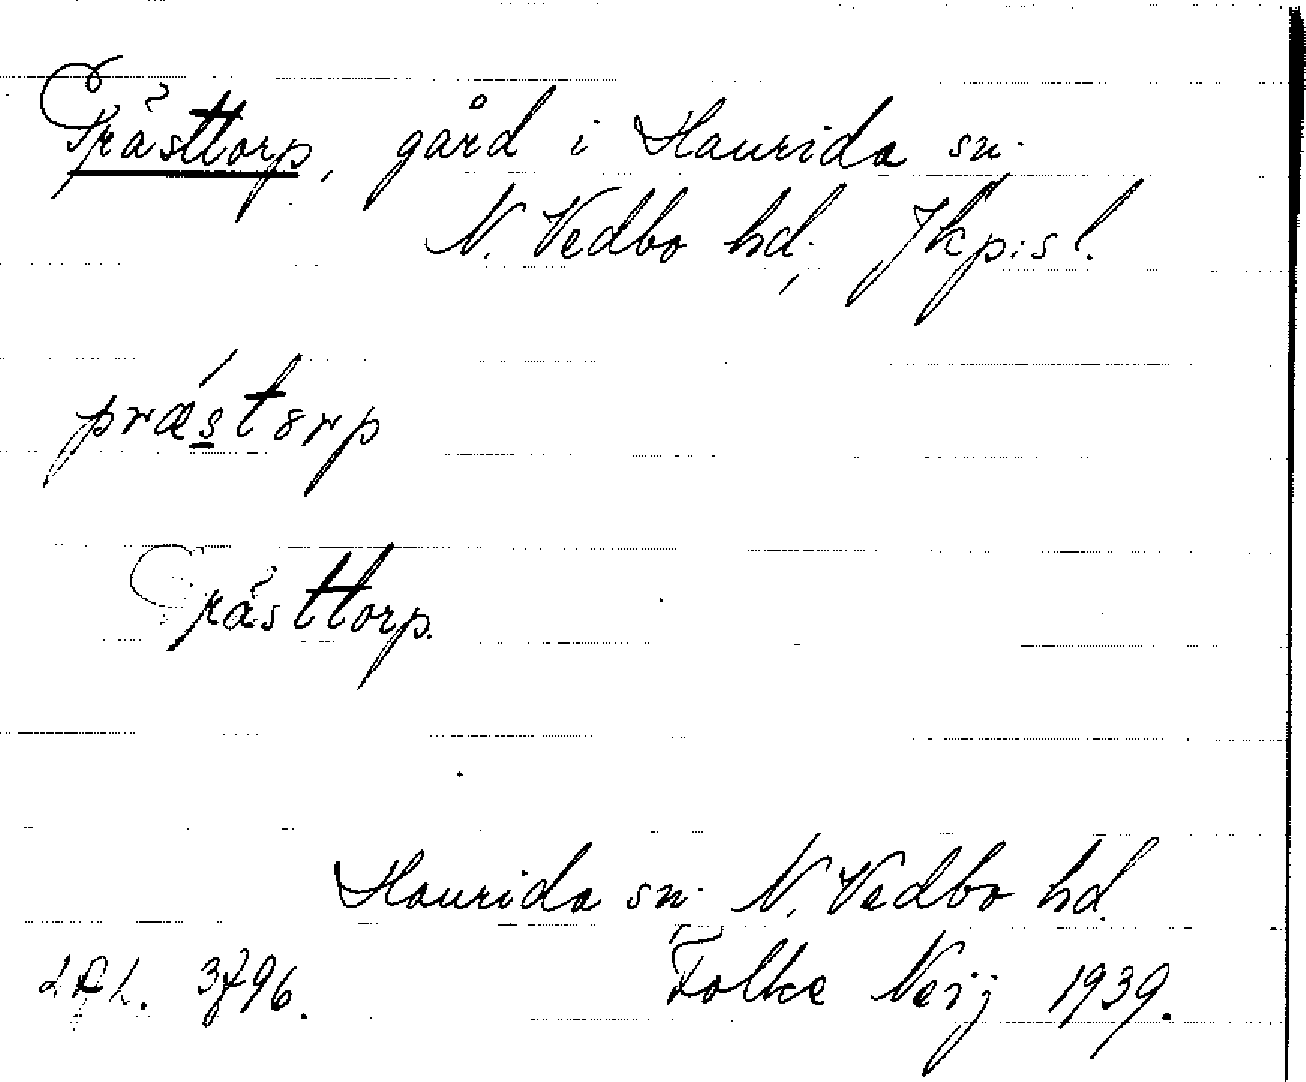 Prästtorp, gård i Haurida sn.
N. Vedbo hd, Jkp:s l.
præstorp
Prästtorp.
Haurida sn. N. Vedbo hd.
3796. Folke Neij 1939.